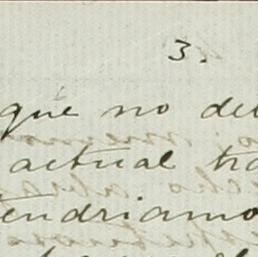 3.
que no de
actual ha
tendriamo